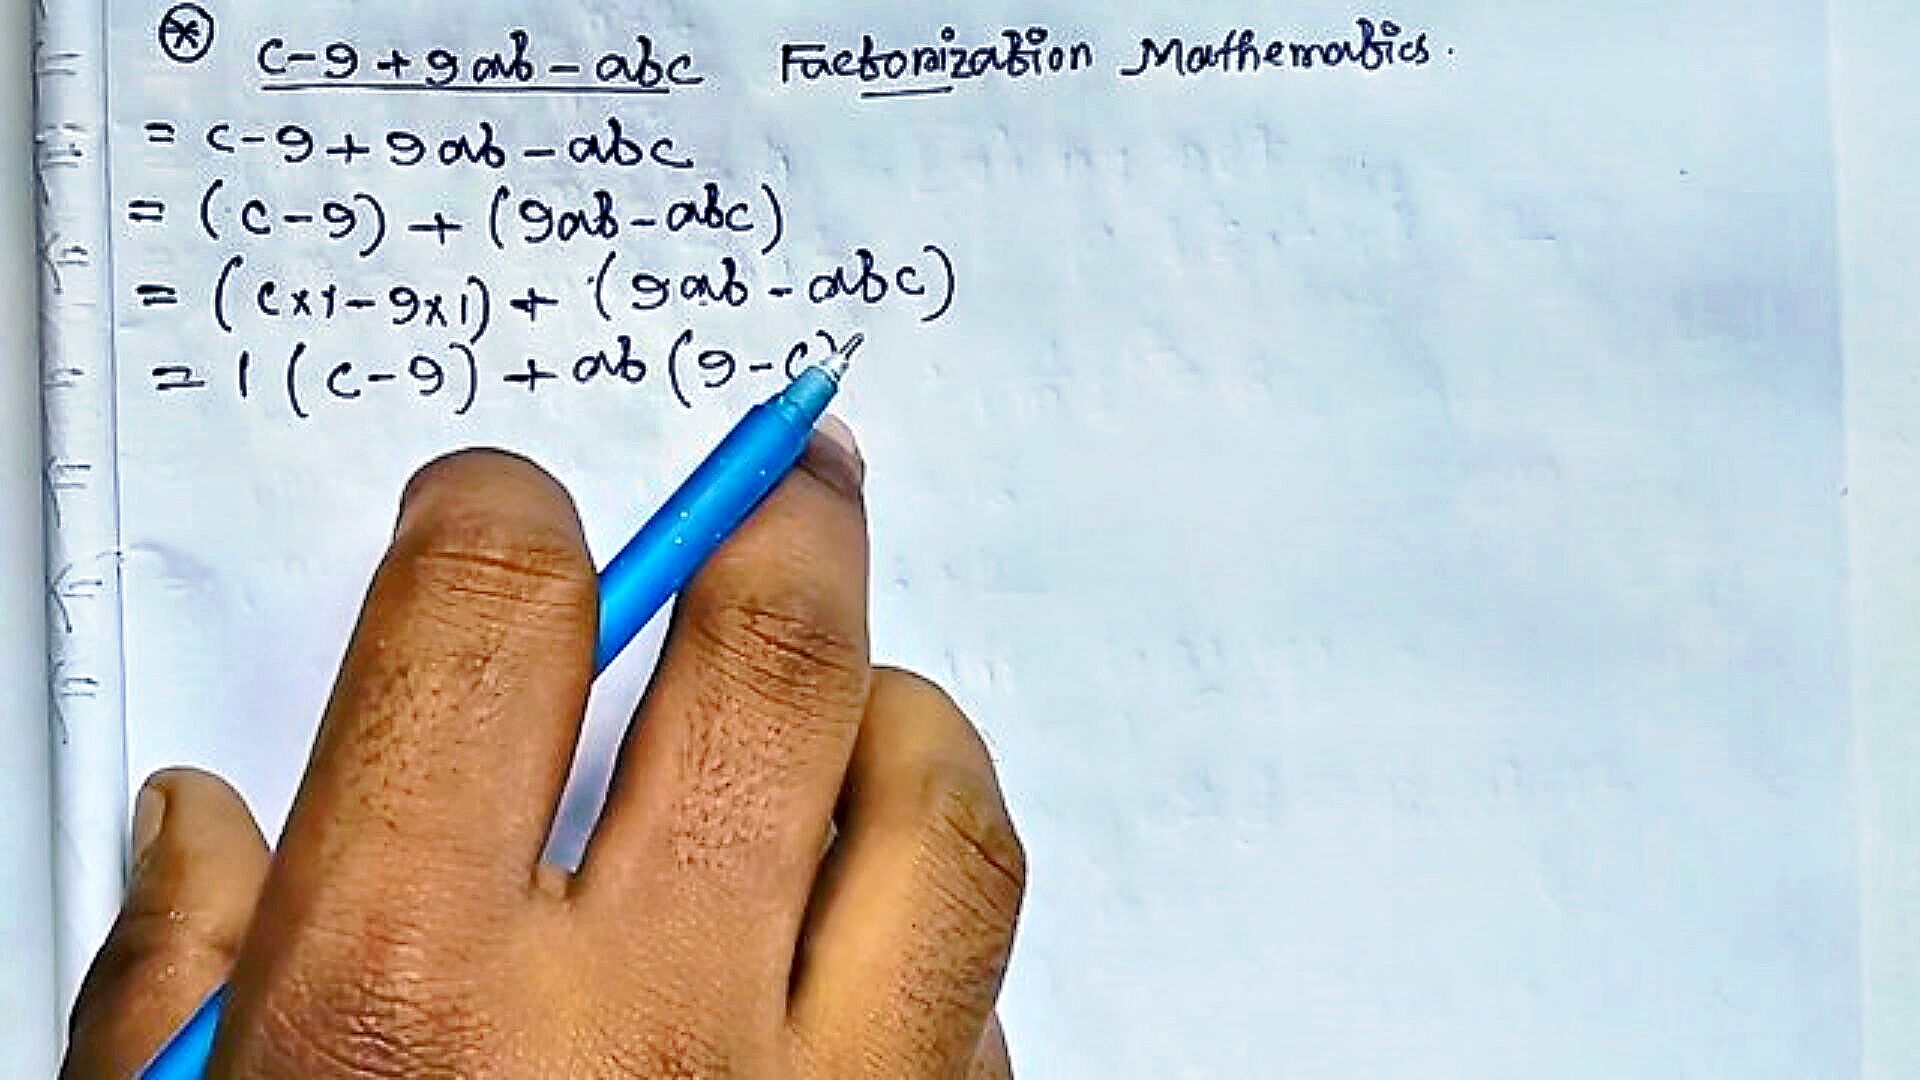 * c-9+9ab-abc Factorization Mathematics.
= c-9+9ab-abc
= (c-9) + (9ab-abc)
= (c×1-9×1) + (9ab-abc)
= 1 (c-9) + ab (9-c)